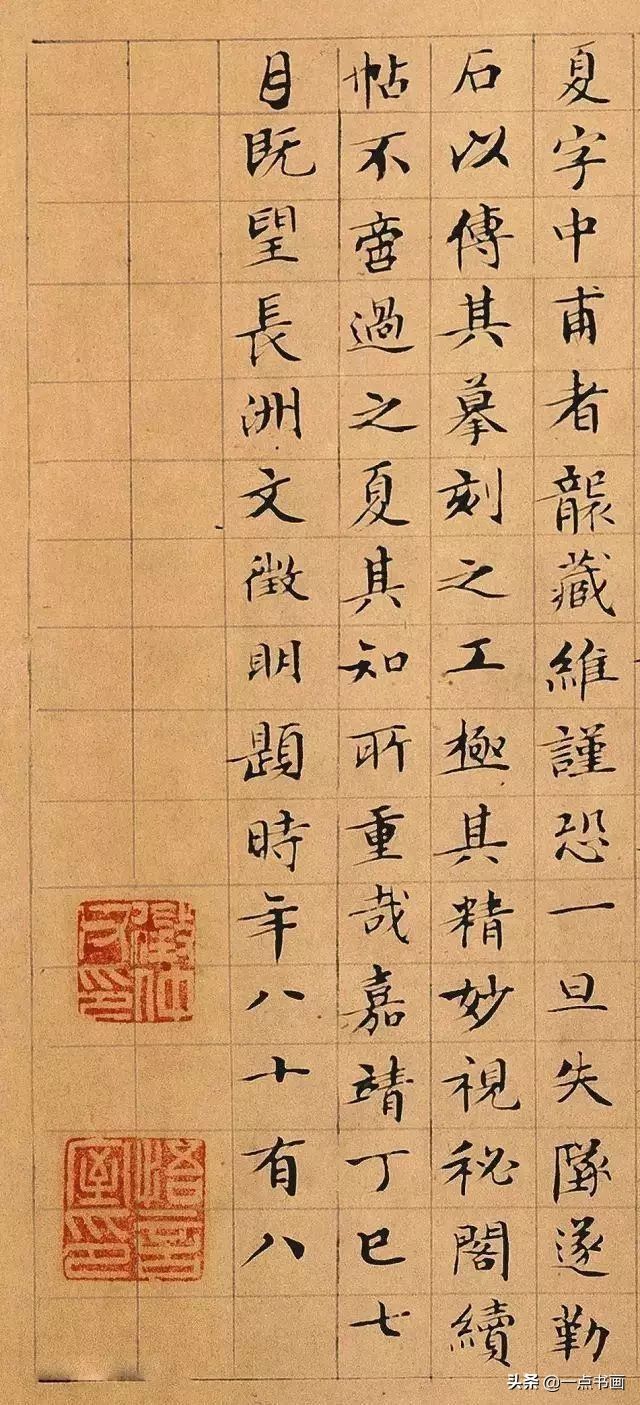 夏字中甫者襲藏維謹恐一旦失墜遂勒
石以傳其摹刻之工極其精妙視秘閣續
帖不啻過之夏其知所重哉嘉靖丁巳七
月既望長洲文徵明題時年八十有八
徵仲父印
悟言室印
头条 @一点书画